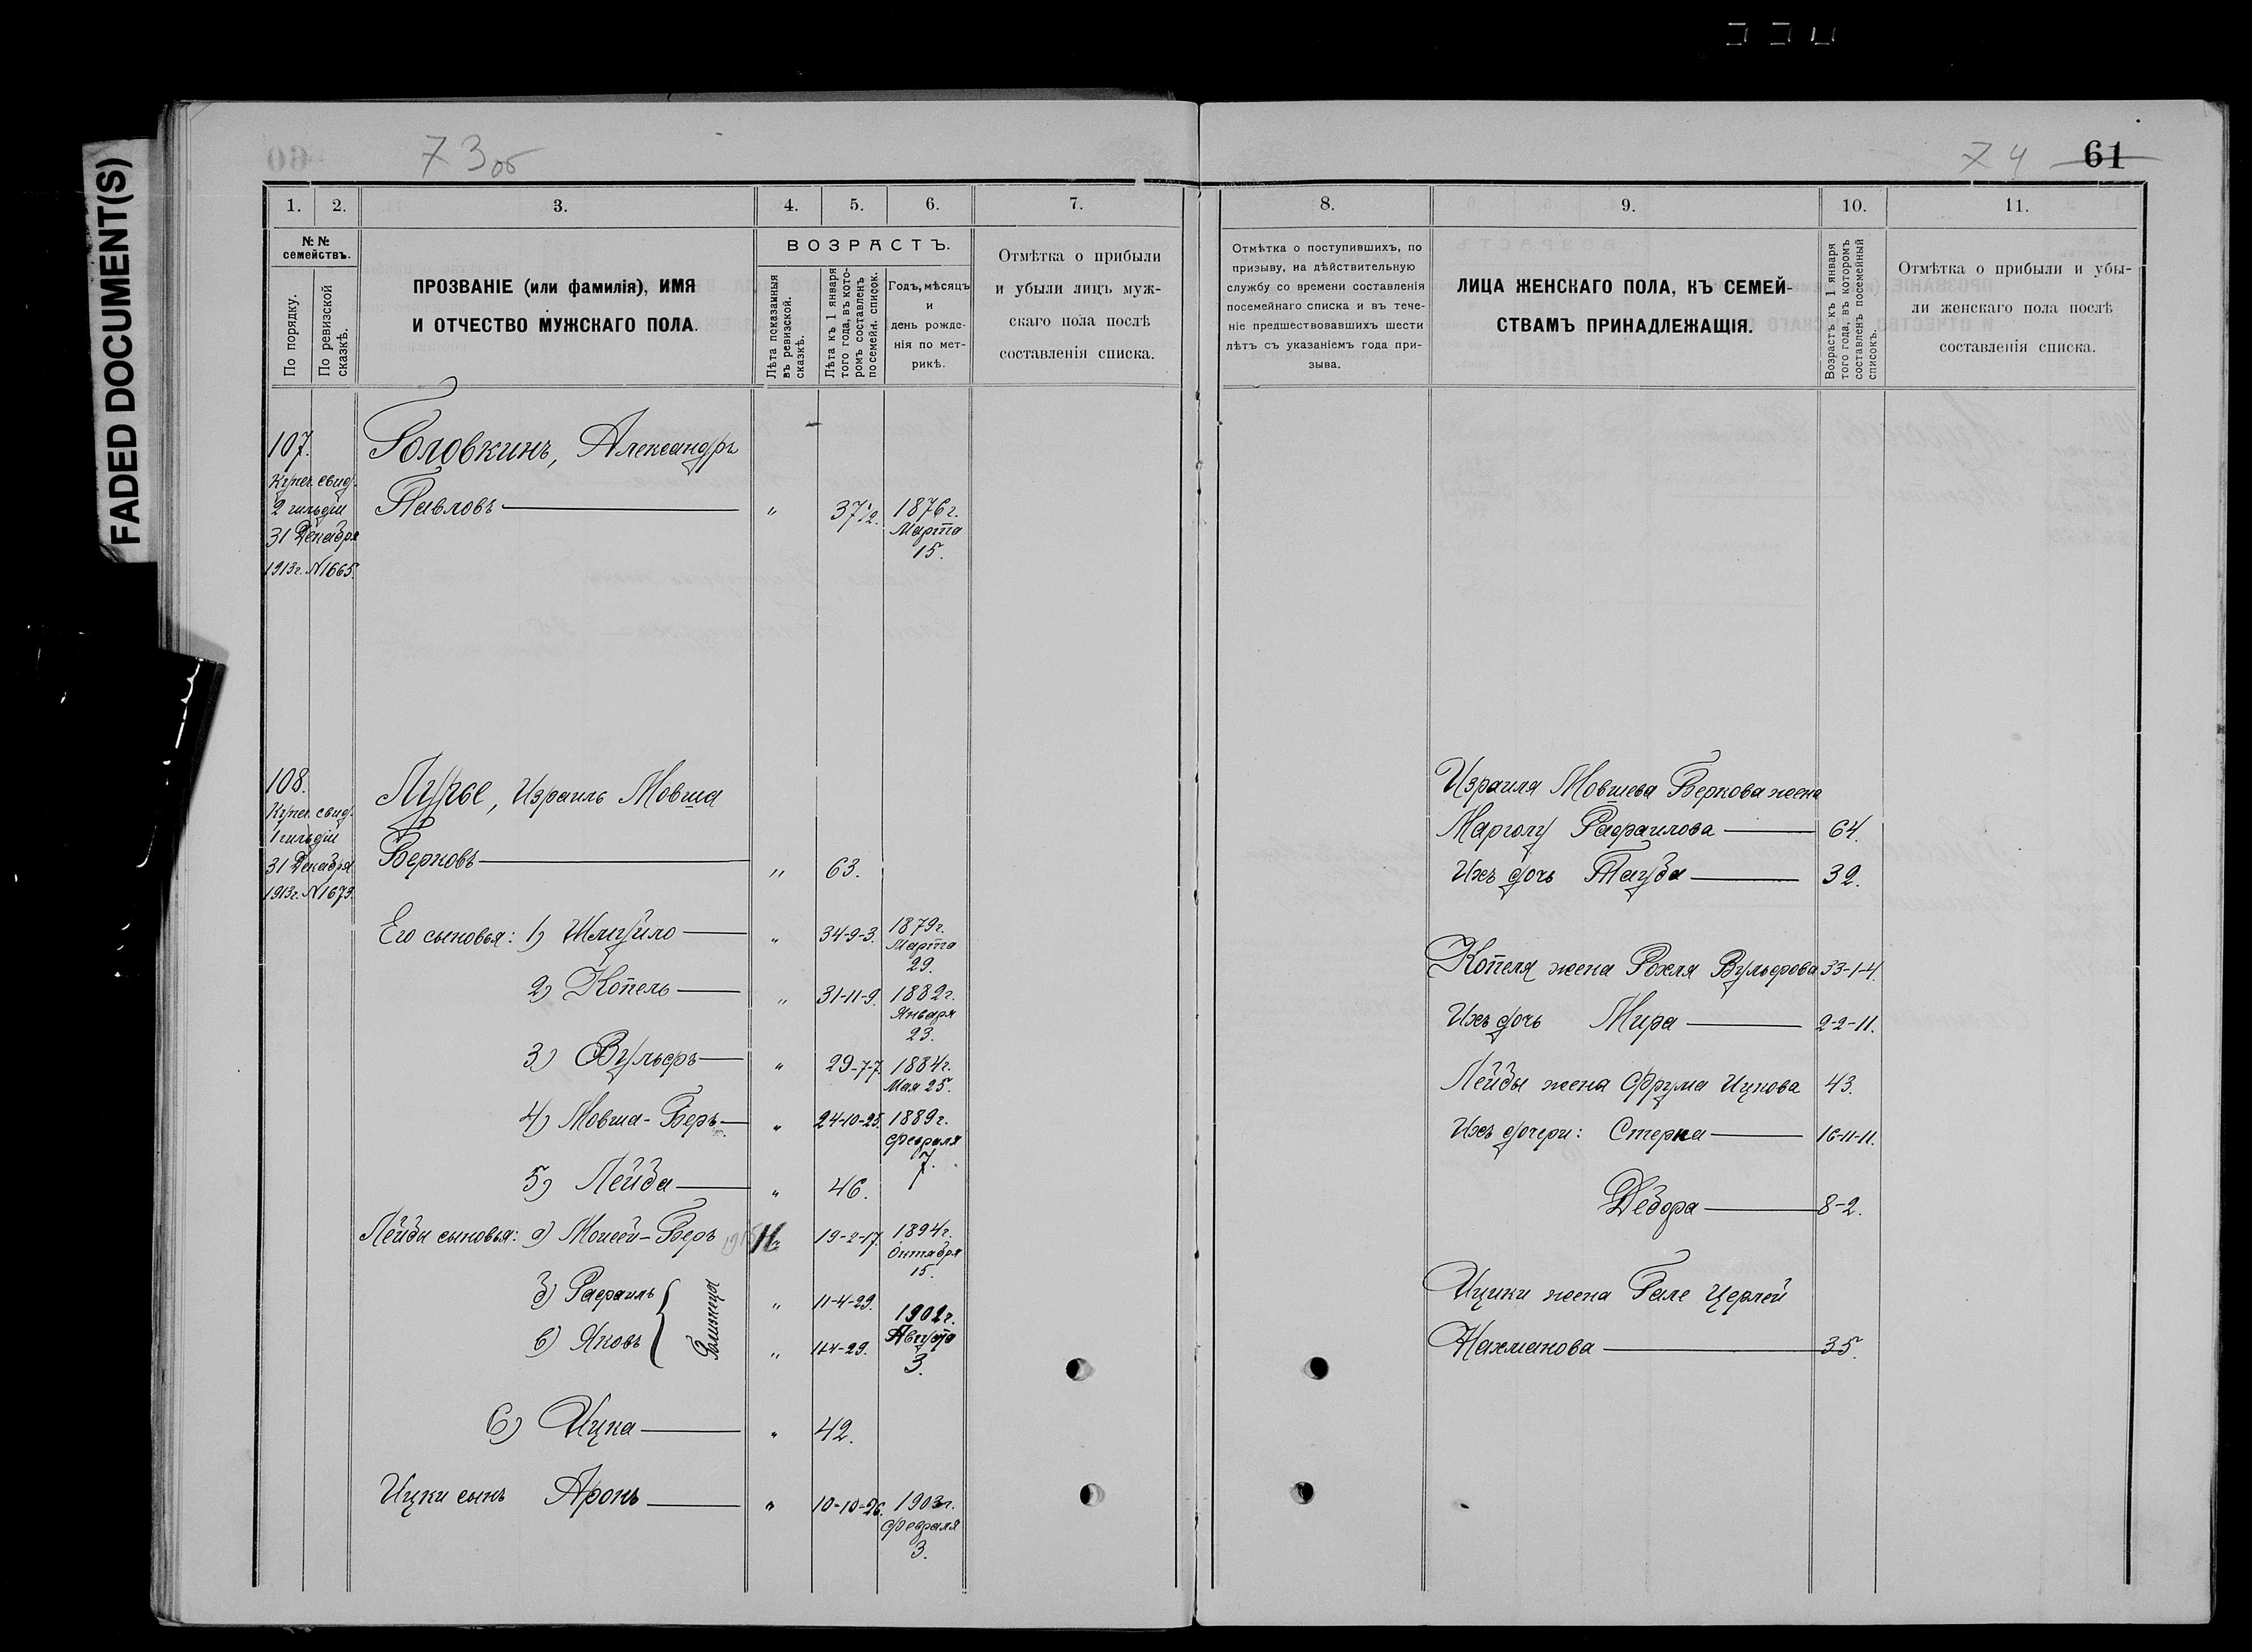 FADED DOCUMENT(S)
73об
74 61
1. 2. 3. 4. 5. 6. 7.
8. 9. 10. 11.
№№ семействъ.
По порядку.
По ревизской сказкѣ.
ПРОЗВАНІЕ (или фамилія), ИМЯ
И ОТЧЕСТВО МУЖСКАГО ПОЛА.
ВОЗРАСТЪ.
Лѣта показанныя въ ревизской. сказкѣ.
Лѣта къ 1 января того года, въ кото-ромъ составленъ посемейн. список.
Годъ, мѣсяцъ
и
день рожде-
нія по мет-
рикѣ.
Отмѣтка о прибыли
и убыли лицъ муж-
скаго пола послѣ
составленія списка.
Отмѣтка о поступившихъ, по
призыву, на дѣйствительную
службу со времени составленія
посемейнаго списка и въ тече-
ніе предшествовавшихъ шести
лѣтъ съ указаніемъ года при-
зыва.
ЛИЦА ЖЕНСКАГО ПОЛА, КЪ СЕМЕЙ-
СТВАМЪ ПРИНАДЛЕЖАЩІЯ.
Возрастъ къ 1 января
того года, въ которомъ
составленъ посемейный
списокъ.
Отмѣтка о прибыли и убы-
ли женскаго пола послѣ
составленія списка.
107.
Купеч. свид.
2 гильдіи
31 Декабря
1913г. N1665.
Головкинъ, Александръ
Павловъ " 37½. 1876г.
Марта
15.
108.
Купеч. свид.
1 гильдіи
31 Декабря
1913г. N1673.
Лурье, Израиль Мовша
Берковъ " 63.
Его сыновья: 1) Шмуйло " 34-9-3. 1879г.
Марта
29.
2) Копель " 31-11-9. 1882г.
Января
23.
3) Вульфъ " 29-7-7. 1884г.
Мая 25.
4) Мовша-Беръ " 24-10-25. 1889г.
Февраля
7.
5) Лейба " 46.
Лейби сыновья: а) Моисей-Беръ 19-2-17. 1894г.
Октября
15.
б) Рафаилъ " 11-4-29.
в) Яковъ " 11-4-29.
Близнецы
1902г.
Августа
3.
6) Ицка " 42.
Ицки сынъ Аронъ " 10-10-26. 1903г.
Февраля
3.
Израиля Мовшева Беркова жена
Марголу Рафаилова 64.
Ихъ дочь Тауба 32.
Копеля жена Рохля Вульфова 33-1-4.
Ихъ дочь Мира 2-2-11.
Лейбы жена Фрума Ицкова 43.
Ихъ дочери: Стерна 16-11-11.
Дебора 8-2.
Ицики жена Гале Церлей
Нахманова 35.